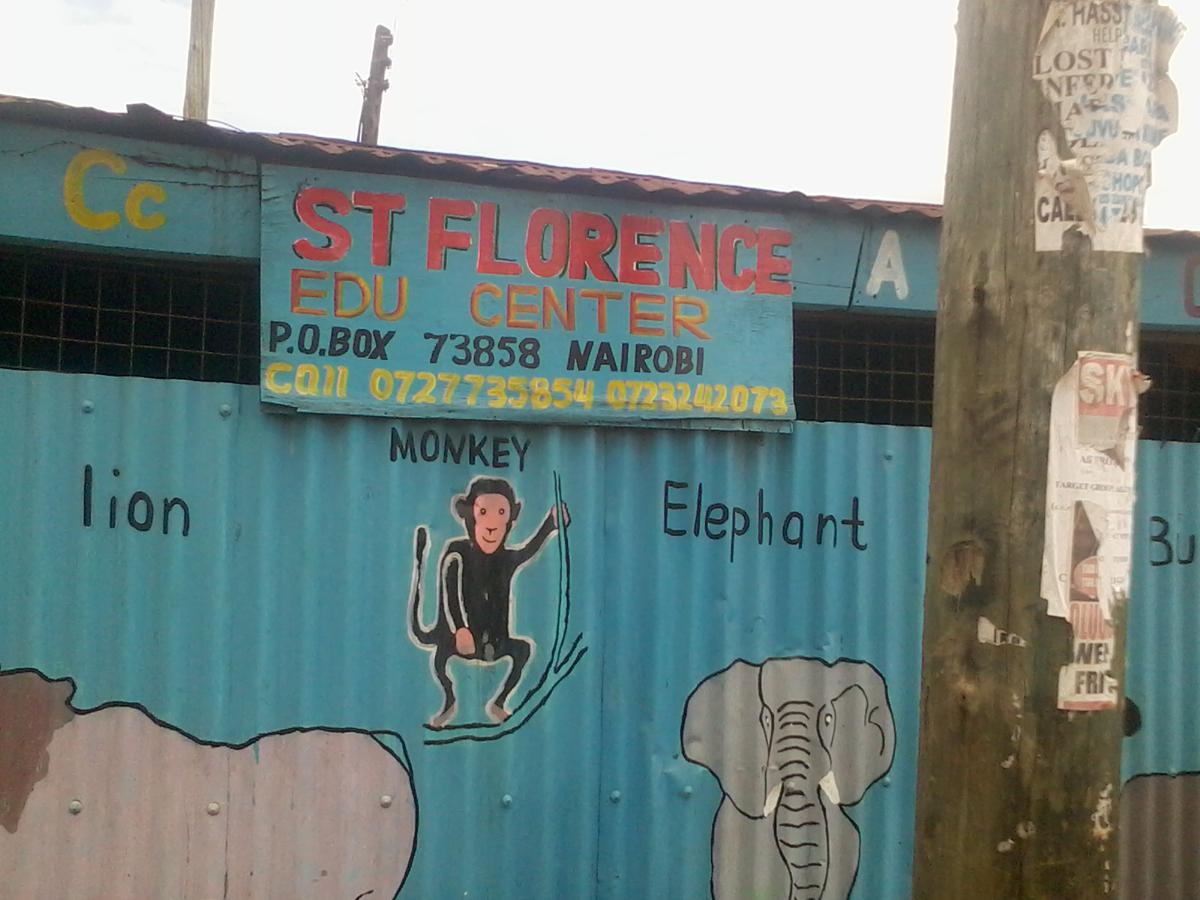 Cc
ST FLORENCE
EDU CENTER
P.O.BOX 73858 NAIROBI
Call 0727735854 0723242073
A
lion
MONKEY
Elephant
Bu
HASS
HELP
LOST
NEED
A
SHOP
CALL
SK
TARGET
WE
FRI